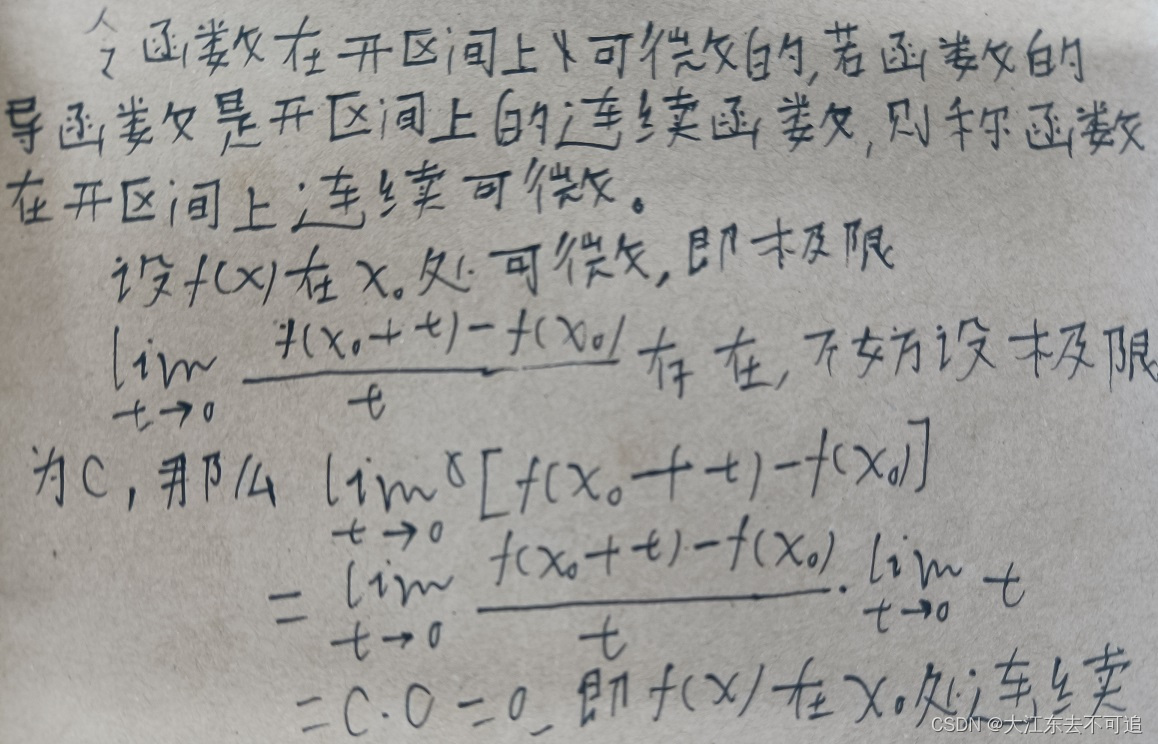 令函数在开区间上可微的,若函数的
导函数是开区间上的连续函数,则称函数
在开区间上连续可微。
设f(x)在x₀处可微,即极限
lim t→0 (f(x₀+t)-f(x₀))/t 存在,不妨设极限
为C,那么 lim t→0 [f(x₀+t)-f(x₀)]
= lim t→0 (f(x₀+t)-f(x₀))/t · lim t→0 t
=C·0=0 即f(x)在x₀处连续
CSDN @大江东去不可追